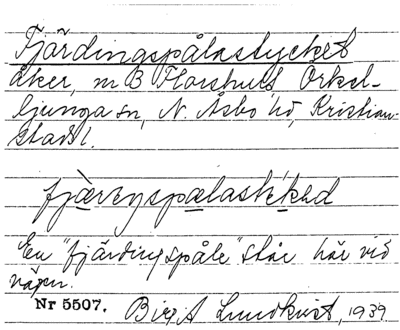 Fjärdingspålastycket
åker, m B Florshult Örkel-
ljunga sn, N. Åsbo hd, Kristian-
stads l.
fjæ̀rŋspa̱lasti̱ked
En "fjärdingspåle" står här vid
vägen.
Nr 5507. Lundkvist, 1939